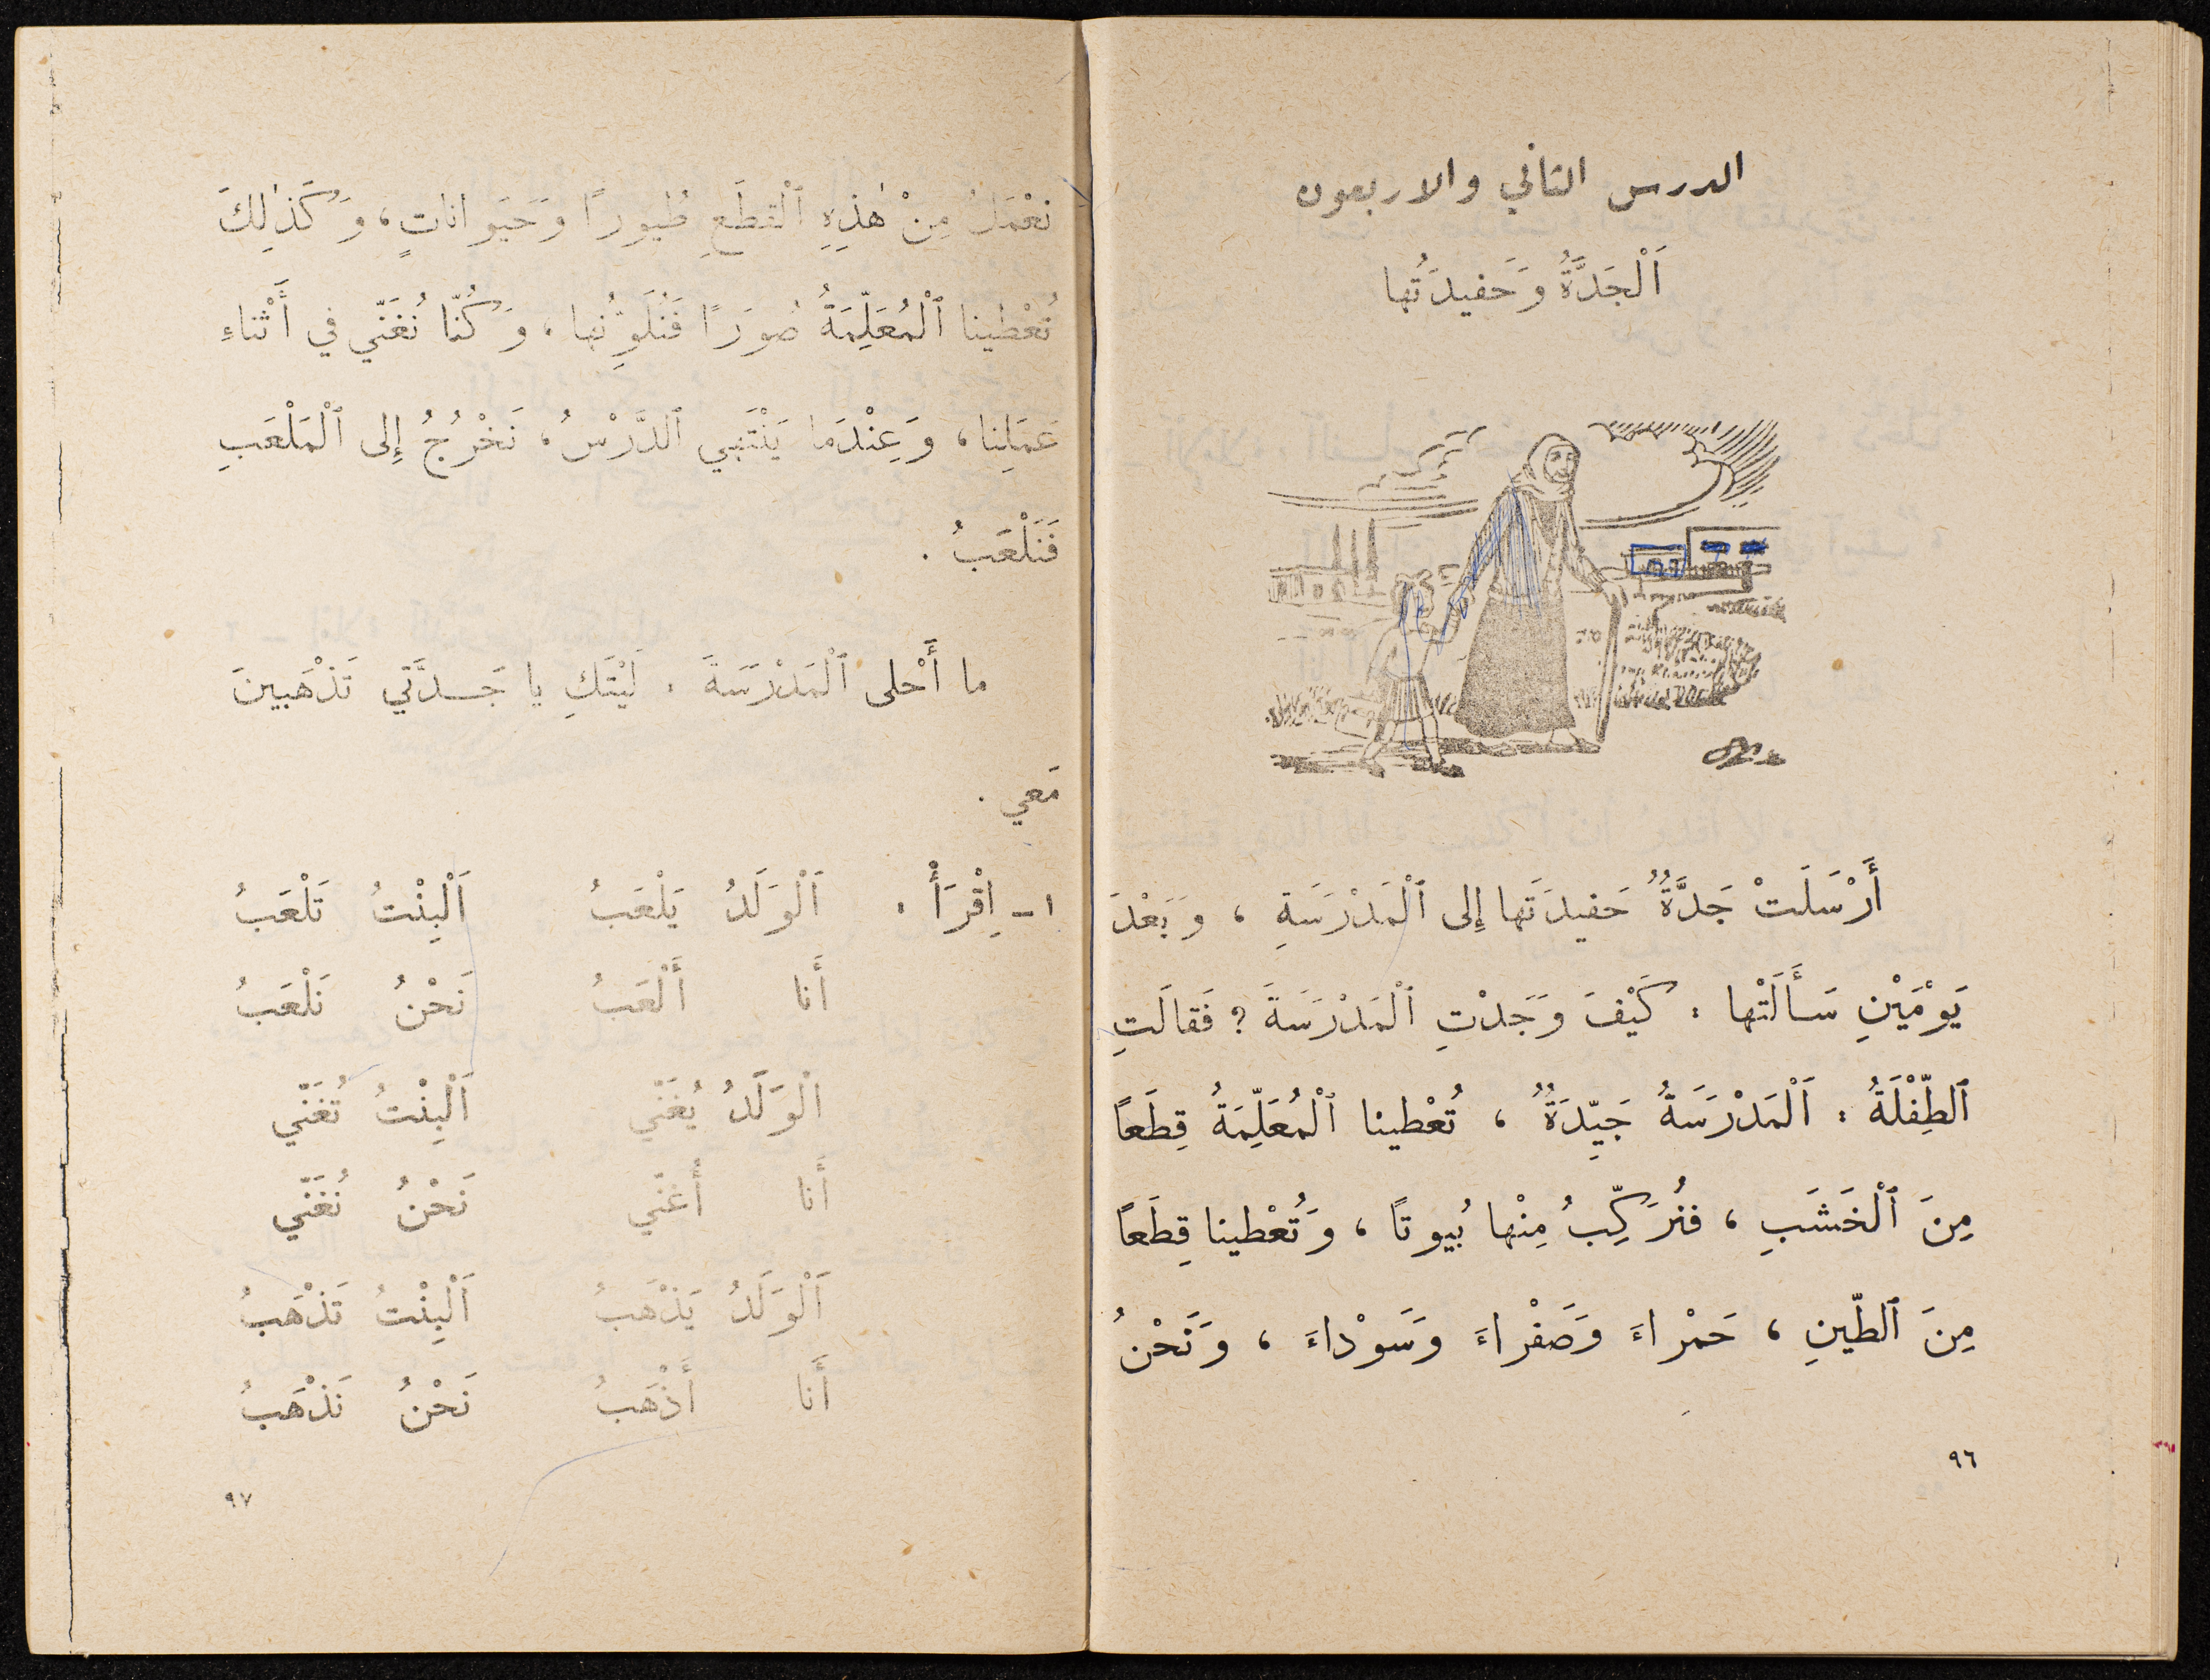 الدرس الثاني والاربعون
اَلْجَدَّةُ وَحَفيدَتُها
أَرْسَلَتْ جَدَّةٌ حَفيدَتَها إِلى ٱلْمَدْرَسَةِ ، وَبَعْدَ
يَوْمَيْنِ سَأَلَتْها : كَيْفَ وَجَدْتِ ٱلْمَدْرَسَةَ ؟ فَقالَتِ
ٱلطِّفْلَةُ : اَلْمَدْرَسَةُ جَيِّدَةٌ ، تُعْطينا ٱلْمُعَلِّمَةُ قِطَعاً
مِنَ ٱلْخَشَبِ ، فَنُرَكِّبُ مِنْها بُيوتاً ، وَتُعْطينا قِطَعاً
مِنَ ٱلطّينِ ، حَمْراءَ وَصَفْراءَ وَسَوْداءَ ، وَنَحْنُ
٩٦
نَعْمَلُ مِنْ هٰذِهِ ٱلْقِطَعِ طُيوراً وَحَيَواناتٍ ، وَكَذٰلِكَ
تُعْطينا ٱلْمُعَلِّمَةُ صُوَراً فَنُلَوِّنُها ، وَكُنّا نُغَنّي في أَثْناءِ
عَمَلِنا ، وَعِنْدَما يَنْتَهي ٱلدَّرْسُ ، نَخْرُجُ إِلى ٱلْمَلْعَبِ
فَنَلْعَبُ .
ما أَحْلى ٱلْمَدْرَسَةَ . لَيْتَكِ يا جَدَّتي تَذْهَبينَ
مَعي .
١ - اِقْرَأْ : اَلْوَلَدُ يَلْعَبُ اَلْبِنْتُ تَلْعَبُ
أَنا أَلْعَبُ نَحْنُ نَلْعَبُ
اَلْوَلَدُ يُغَنّي اَلْبِنْتُ تُغَنّي
أَنا أُغَنّي نَحْنُ نُغَنّي
اَلْوَلَدُ يَذْهَبُ اَلْبِنْتُ تَذْهَبُ
أَنا أَذْهَبُ نَحْنُ نَذْهَبُ
٩٧